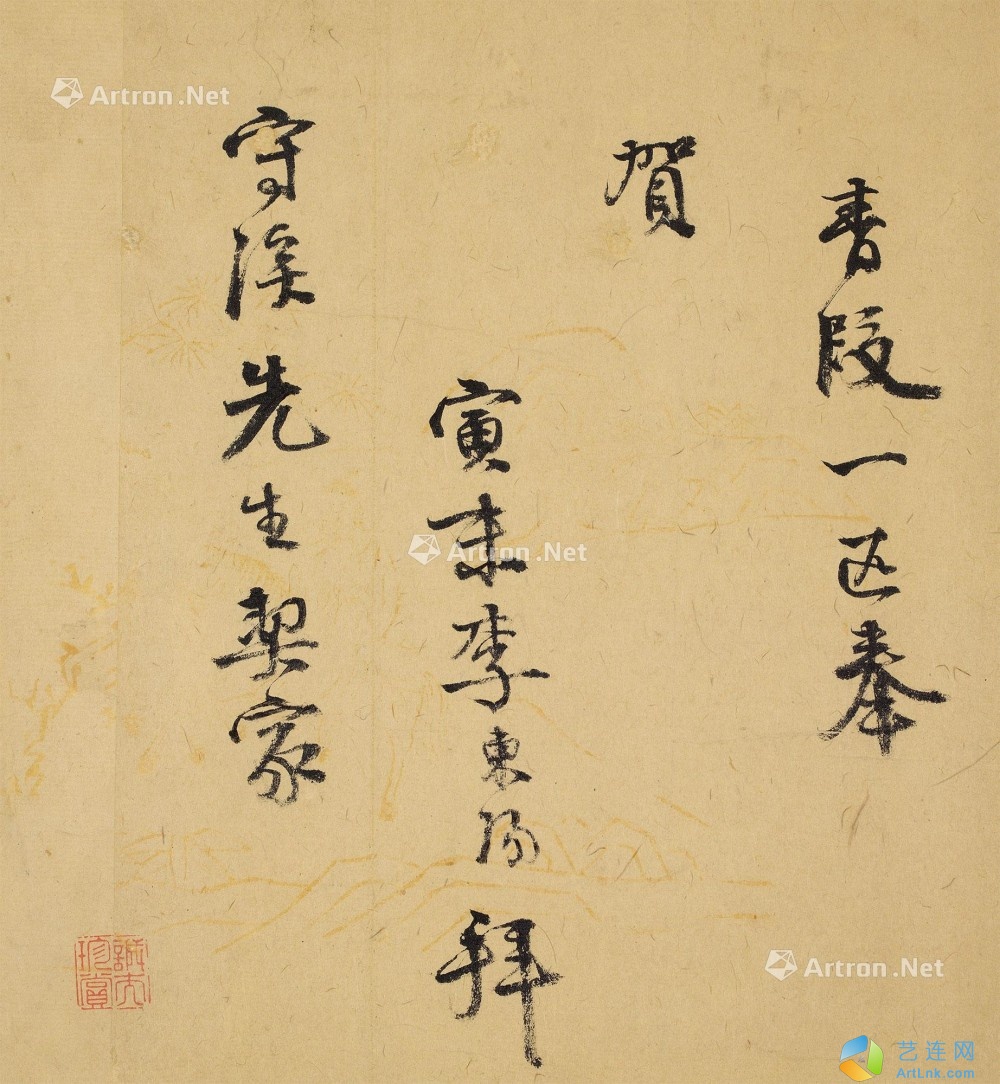 Artron.Net
青段一匹奉
賀
寅末李東陽拜
守溪先生契家
Artron.Net
Artron.Net
艺连网
ArtLnk.com